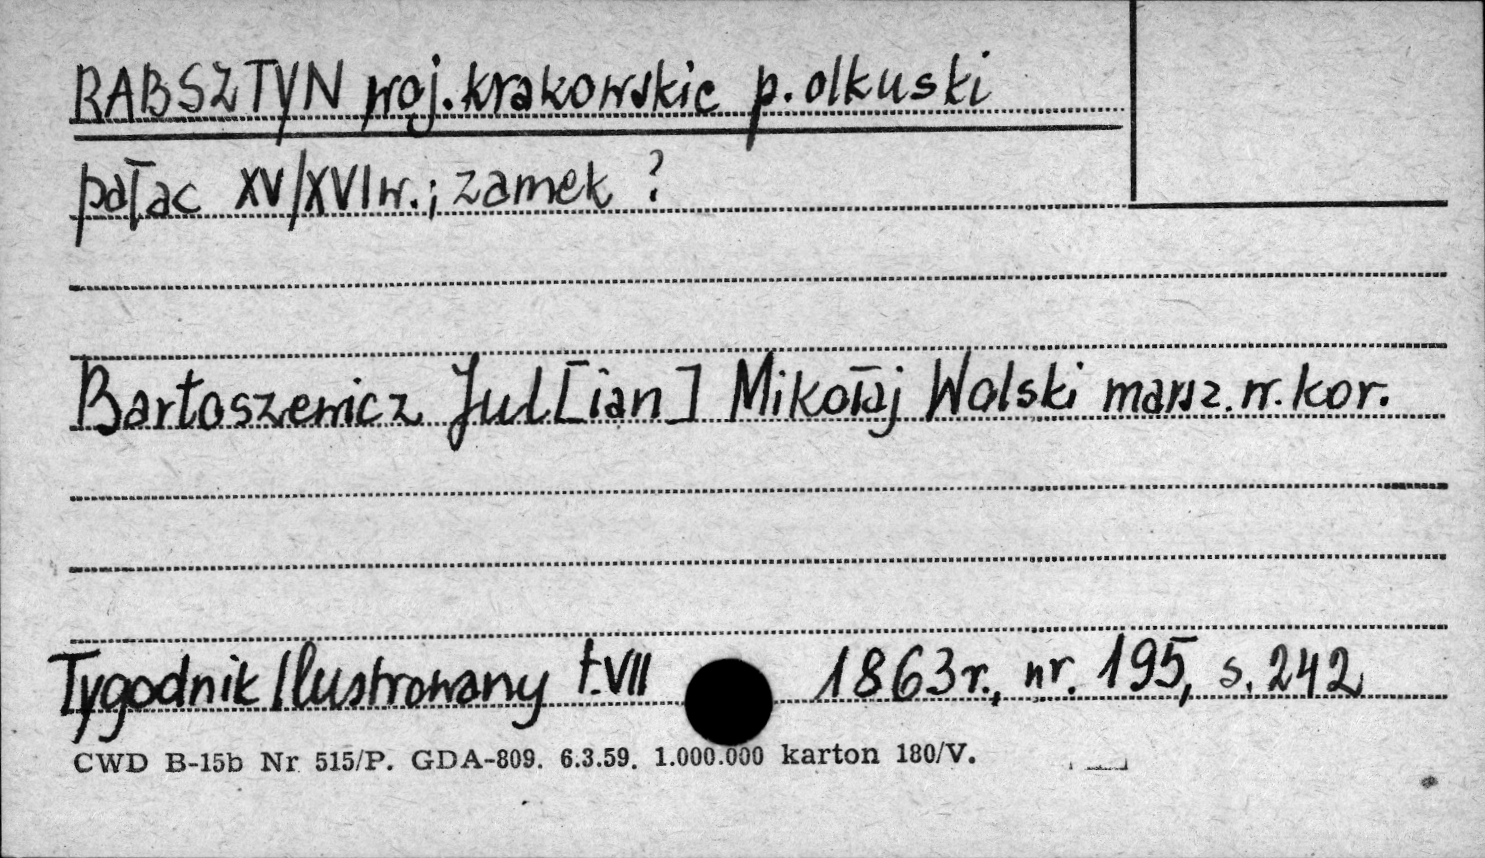 RABSZTYN woj. krakowskie p. olkuski
pałac XV/XVI w.; zamek ?
Bartoszewicz Jul[ian] Mikołaj Wolski marsz. w. kor.
Tygodnik Ilustrowany t. VII 1863 r., nr. 195, s. 242
CWD B-15b Nr 515/P. GDA-809. 6.3.59. 1.000.000 karton 180/V.